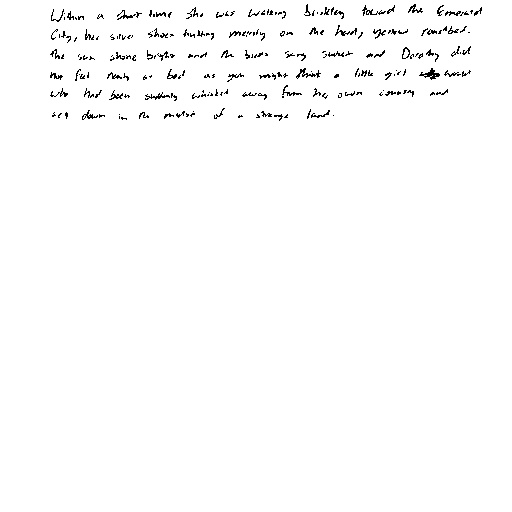 Within a short time she was walking briskley toward the Emerald
City, her silver shoes tinkling merrily on the hard, yellow roadbed.
The sun shone bright and the birds sang sweet and Dorothy did
not feel nearly as bad as you might think a little girl would
who had been suddenly whisked away from her own country and
set down in the midst of a strange land.